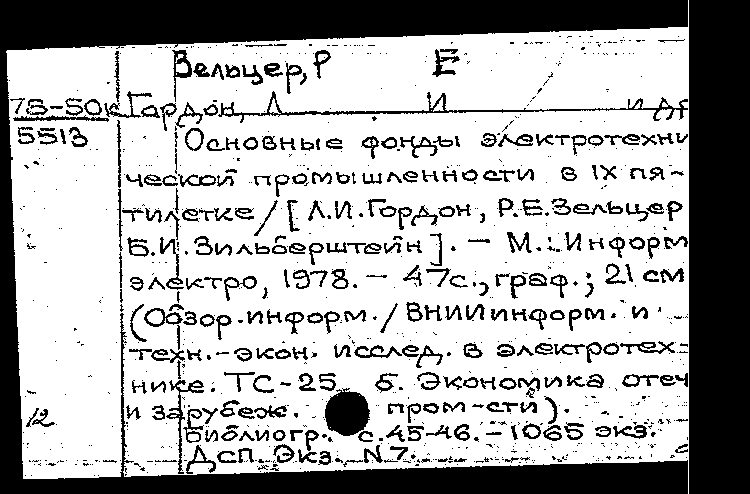 Зельцер, Р Е
78-50к Гордон, Л И и др
5513 Основные фонды электротехни
ческой промышленности в IX пя-
тилетке / [ Л.И. Гордон, Р.Е. Зельцер
Б.И. Зильберштейн ]. — М.: Информ
электро, 1978. — 47с., граф.; 21 см
(Обзор. информ. / ВНИИинформ. и
техн.-экон. исслед. в электротех-
нике. ТС-25 б. Экономика отеч
12 и зарубеж. пром-сти).
Библиогр.: с. 45-46. - 1065 экз.
Дсп. Экз. N 7.